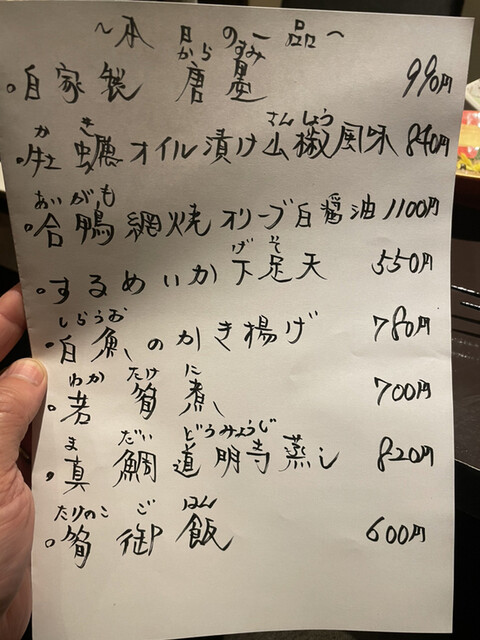 ~本日の一品~
からすみ
自家製 唐墨 990円
かき さんしょう
牡蠣オイル漬け山椒風味 840円
あいがも
合鴨網焼オリーブ白醤油 1100円
げそ
するめいか下足天 550円
しらうお
白魚のかき揚げ 780円
わかたけに
若筍煮 700円
まだいどうみょうじ
真鯛道明寺蒸し 820円
たけのこごはん
筍御飯 600円